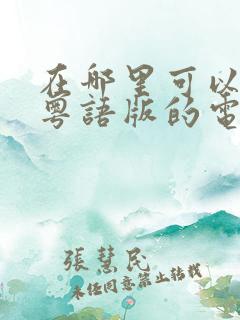 在哪里可以
粤語版的電
張慧民
未经同意禁止转载